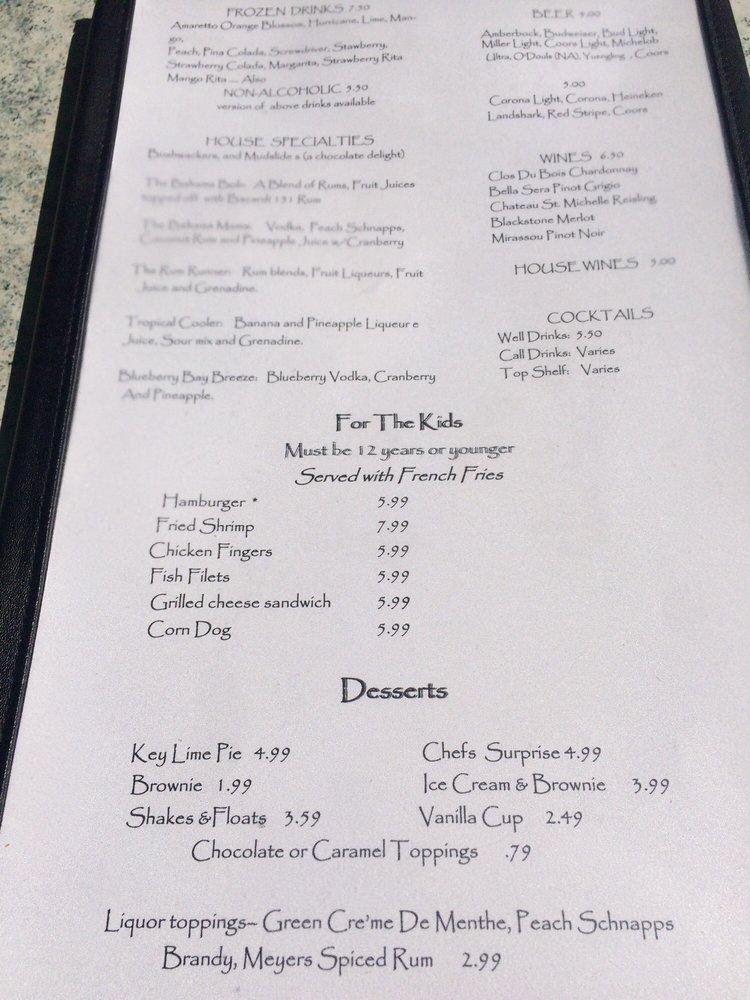 FROZEN DRINKS 7.50
Amaretto Orange Blossom, Hurricane, Lime, Man-
go,
Peach, Pina Colada, Screwdriver, Stawberry,
Strawberry Colada, Margarita, Strawberry Rita
Mango Rita .... Also
NON-ALCOHOLIC 5.50
version of above drinks available
HOUSE SPECIALTIES
Bushwackers, and Mudslide s (a chocolate delight)
The Bahama Bob: A Blend of Rums, Fruit Juices
topped off with Bacardi 151 Rum
The Bahama Mama: Vodka, Peach Schnapps,
Coconut Rum and Pineapple Juice w/Cranberry
The Rum Runner: Rum blends, Fruit Liqueurs, Fruit
Juice and Grenadine.
Tropical Cooler: Banana and Pineapple Liqueur e
Juice, Sour mix and Grenadine.
Blueberry Bay Breeze: Blueberry Vodka, Cranberry
And Pineapple.
BEER 4.00
Amberbock, Budweiser, Bud Light,
Miller Light, Coors Light, Michelob
Ultra, O'Douls (NA), Yuengling , Coors
5.00
Corona Light, Corona, Heineken
Landshark, Red Stripe, Coors
WINES 6.50
Clos Du Bois Chardonnay
Bella Sera Pinot Grigio
Chateau St. Michelle Reisling
Blackstone Merlot
Mirassou Pinot Noir
HOUSE WINES 5.00
COCKTAILS
Well Drinks: 5.50
Call Drinks: Varies
Top Shelf: Varies
For The Kids
Must be 12 years or younger
Served with French Fries
Hamburger * 5.99
Fried Shrimp 7.99
Chicken Fingers 5.99
Fish Filets 5.99
Grilled cheese sandwich 5.99
Corn Dog 5.99
Desserts
Key Lime Pie 4.99 Chefs Surprise 4.99
Brownie 1.99 Ice Cream & Brownie 3.99
Shakes & Floats 3.59 Vanilla Cup 2.49
Chocolate or Caramel Toppings .79
Liquor toppings~ Green Cre'me De Menthe, Peach Schnapps
Brandy, Meyers Spiced Rum 2.99